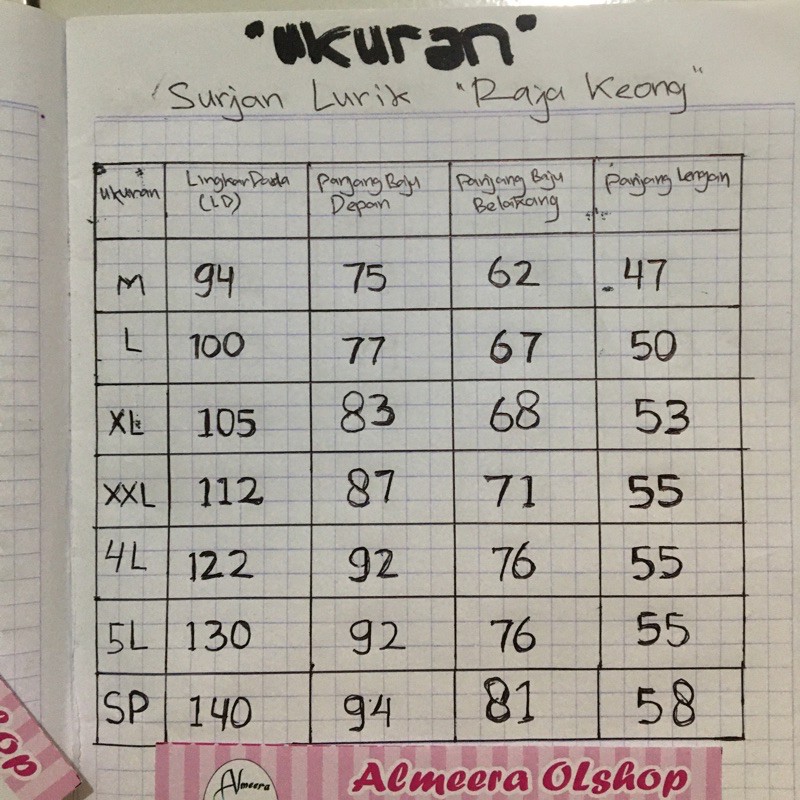 "ukuran"
'Surjan Lurik "Raja Keong"
ukuran Lingkar Dada (LD) Panjang Baju Depan Panjang Baju Belakang Panjang Lengan
M 94 75 62 47
L 100 77 67 50
XL 105 83 68 53
XXL 112 87 71 55
4L 122 92 76 55
5L 130 92 76 55
SP 140 94 81 58
Almeera Almeera OLshop
op